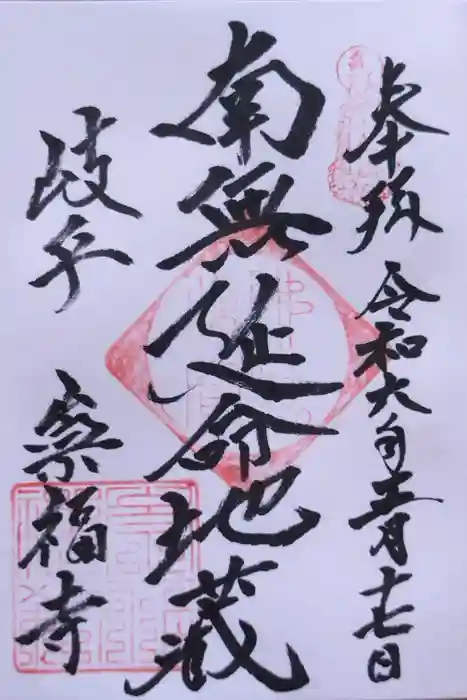 奉拝 令和六年五月十七日
南無延命地蔵
岐阜 崇福寺